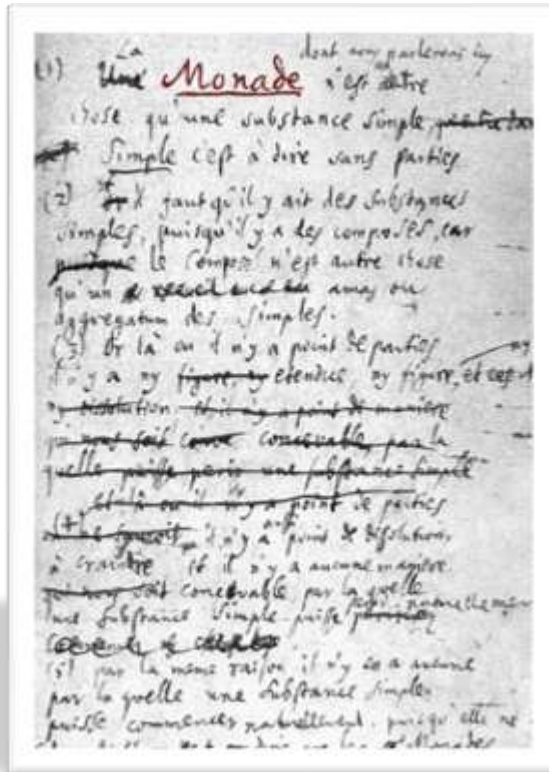 La dont nous parlerons icy
(1) Une Monade n'est autre
chose qu'une substance simple,
Simple c'est à dire sans parties
(2) Il faut qu'il y ait des substances
simples, puisqu'il y a des composés, car
puisque le composé n'est autre chose
qu'un amas ou
aggregatum des simples.
(3) Or là ou il n'y a point de parties
il n'y a ny figure, ny etendue, ny figure,
ny dissolution. Et il n'y a point de maniere
qui nous soit conceuable, par la
quelle puisse perir une substance simple
et là ou il n'y a point de parties
(4) il n'y a point de dissolution
à craindre et il n'y a aucune maniere
qui nous soit conceuable par la quelle
une substance simple puisse
(5) par la même raison il n'y en a aucune
par la quelle une substance simple
puisse commencer naturellement, puisqu'elle ne